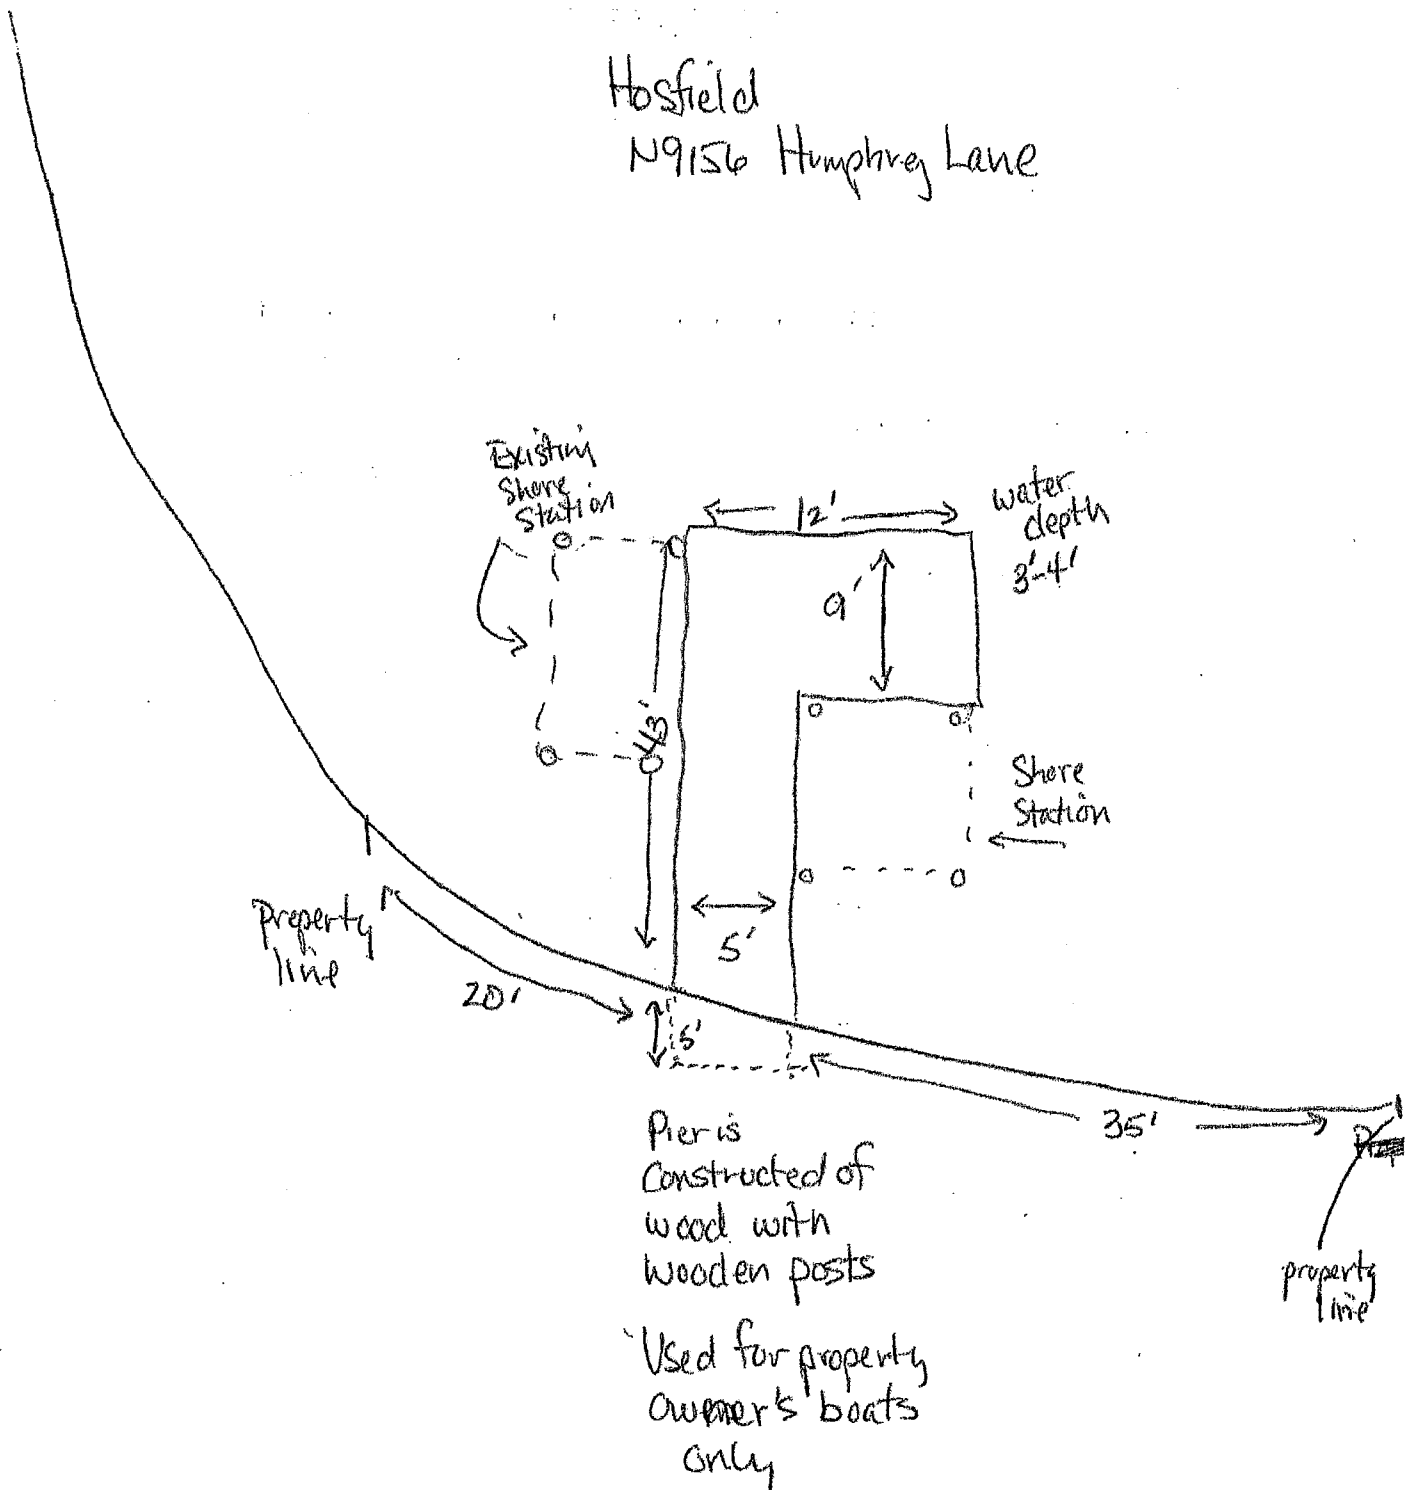 Hosfield
N9156 Humphrey Lane
Existing
Shore
Station
12'
water
depth
3'-4'
9'
43'
Shore
Station
5'
property
line
20'
5'
35'
property
line
Pier is
Constructed of
wood with
wooden posts
Used for property
owner's boats
only